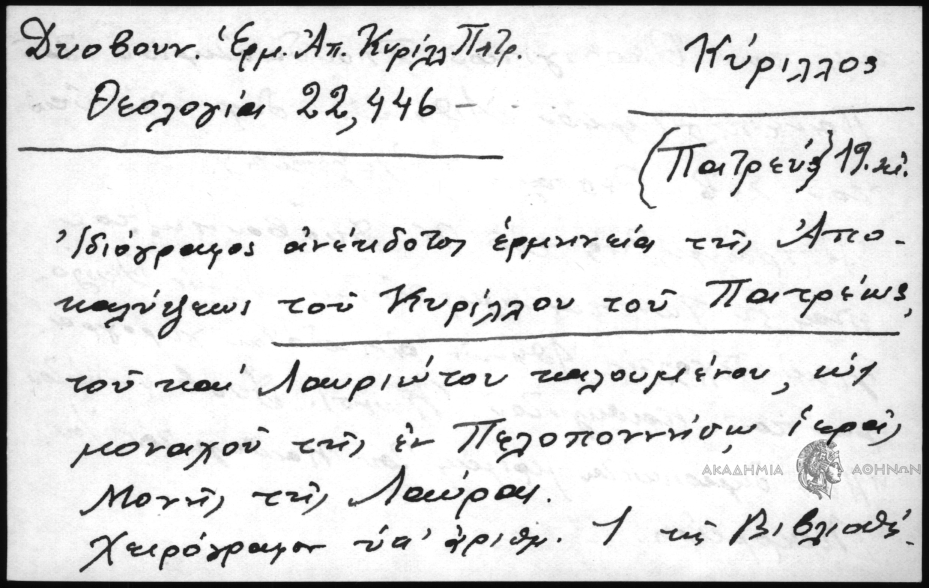 Δυοβουν. Ἑρμ. Ἀπ. Κυρίλλ Πατρ.
Θεολογία 22,446-
Κύριλλος
(Πατρεύς) 19. αἰ.
Ἰδιόγραφος ἀνέκδοτος ἑρμηνεία τῆς Ἀπο-
καλύψεως τοῦ Κυρίλλου τοῦ Πατρέως,
τοῦ καὶ Λαυριώτου καλουμένου,
μοναχοῦ τῆς ἐν Πελοποννήσῳ ἱερᾶς
Μονῆς τῆς Λαύρας.
Χειρόγραφον ὑπ' ἀριθμ. 1 τῆς Βιβλιοθή-
ΑΚΑΔΗΜΙΑ ΑΘΗΝΩΝ